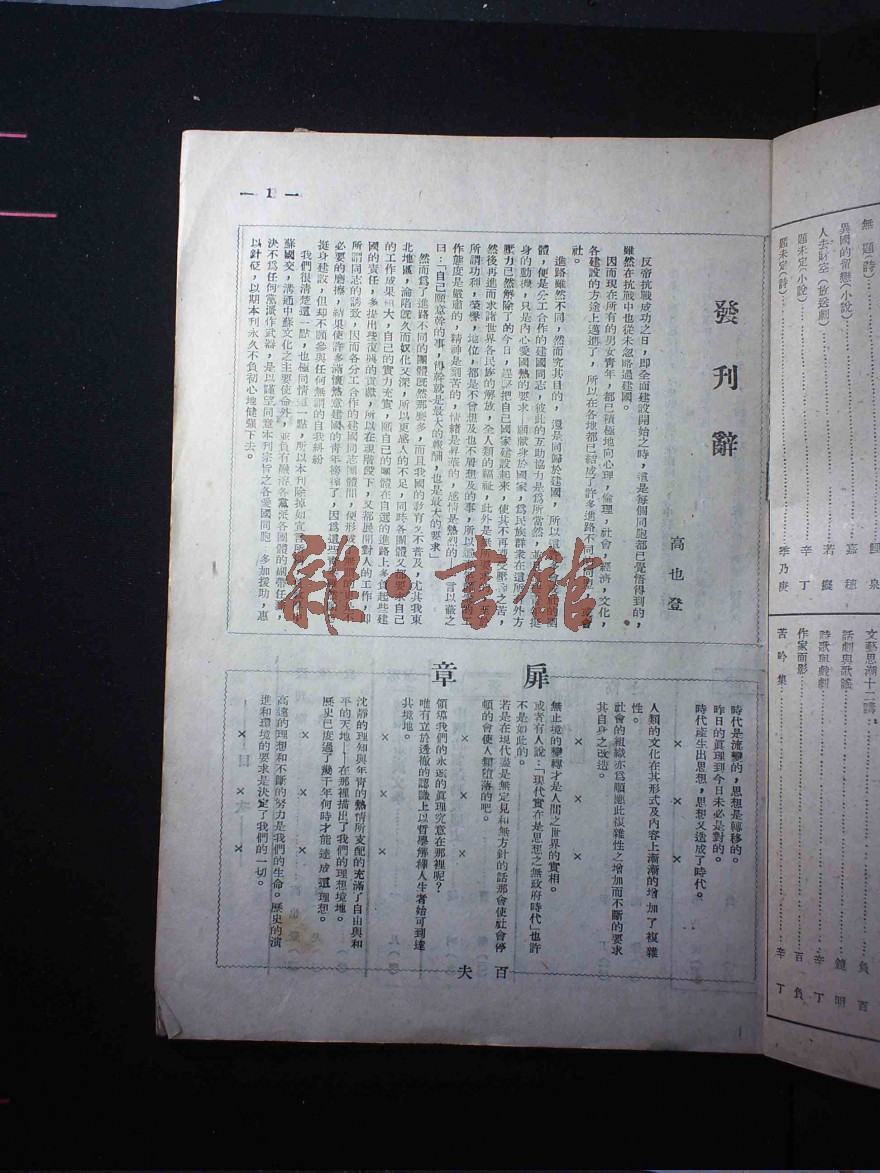 — 1 —
發刊辭
高也登
反帝抗戰成功之日，即全面建設開始之時，這是每個同胞都已覺悟得到的，
雖然在抗戰中也從未忽略過建國。
因而現在所有的男女青年，都已積極地向心理，倫理，社會，經濟，文化，
各建設的方途上邁進了，所以在各地都已結成了許多進路不同
社。
進路雖然不同，然而究其目的，還是同歸於建國，所以
體，便是分工合作的建國同志，彼此的互助協力是爲所當然，
身的動機，只是內心愛國熱的要求—願獻身於國家，爲民族群衆在這
壓力已然解除了的今日，趕緊把自己國家建設起來，使其不再遭受壓
然後再進而求諸世界各民族的解放，全人類的福祉，此外是
所謂功利，榮譽，地位，都是不曾想及也不屑想及的事，所以
作態度是嚴肅的，精神是刻苦的，情緒是昇華的，感情是熱烈的，
曰：「自己願意幹的事，得幹就是最大的報酬，也是最大的要求」
然而爲了進路不同的團體既然那麼多，而且我國的教育又不普及，尤其我東
北地區，淪陷既久而奴化又深，所以更感人的不足，同時各團體又都要求自己
的工作成果
國的責任，多提出些復興的貢獻，所以在現階段下，又都展開對人的工作，即
所謂同志的誘致，因而各分工合作的建國同志團體間，便形成
必要的磨擦，結果使許多滿懷熱意建國的青年徬徨了，因爲這些青年
挺身建設，但却不願參與任何無謂的自我糾紛
我們很清楚這一點，也極同情這一點，所以本刊除掉如宣言所
蘇國交，溝通中蘇文化之主要使命外，並負有融洽各黨派各團體的紐帶任務，
決不爲任何黨派作武器，是以謹望同意本刊宗旨之各愛國同胞，多加援助，惠
以針砭，以期本刊永久不負初心地健强下去。
扉章
百夫
時代是流變的，思想是轉移的。
昨日的眞理到今日未必是對的。
時代產生出思想，思想又造成了時代。
× × ×
人類的文化在其形式及內容上漸漸的增加了複雜
性。
社會的組織亦爲順應此複雜性之增加而不斷的要求
其自身之改造。
× ×
無止境的變轉才是人間之世界的實相。
或者有人說：「現代實在是思想之無政府時代」也許
不是如此的。
若是在現代盡是無定見和無方針的話那會使社會停
頓的會使人類墮落的吧。
× × ×
領導我們的永遠的眞理究竟在那裡呢？
唯有立於透徹的認識上以哲學解釋人生者始可到達
其境地。
× × ×
沈靜的理知與年青的熱情所支配的充滿了自由與和
平的天地——在那裡描出了我們的理想境地。
歷史已度過了幾千年何時才能達成這理想。
× × ×
高遠的理想和不斷的努力是我們的生命。歷史的演
進和環境的要求是決定了我們的一切。
× × ×
無題（詩）
異國的留戀（小說） 嘉穗
人去財空（放送劇） 若癡
題未定（小說） 辛丁
題未定（詩） 季乃庚
文藝思潮十二講： 負百
話劇與歌謠 鏡明
詩歌與戲劇 辛丁
作家面影 百負
苦吟集 辛丁
雜書館